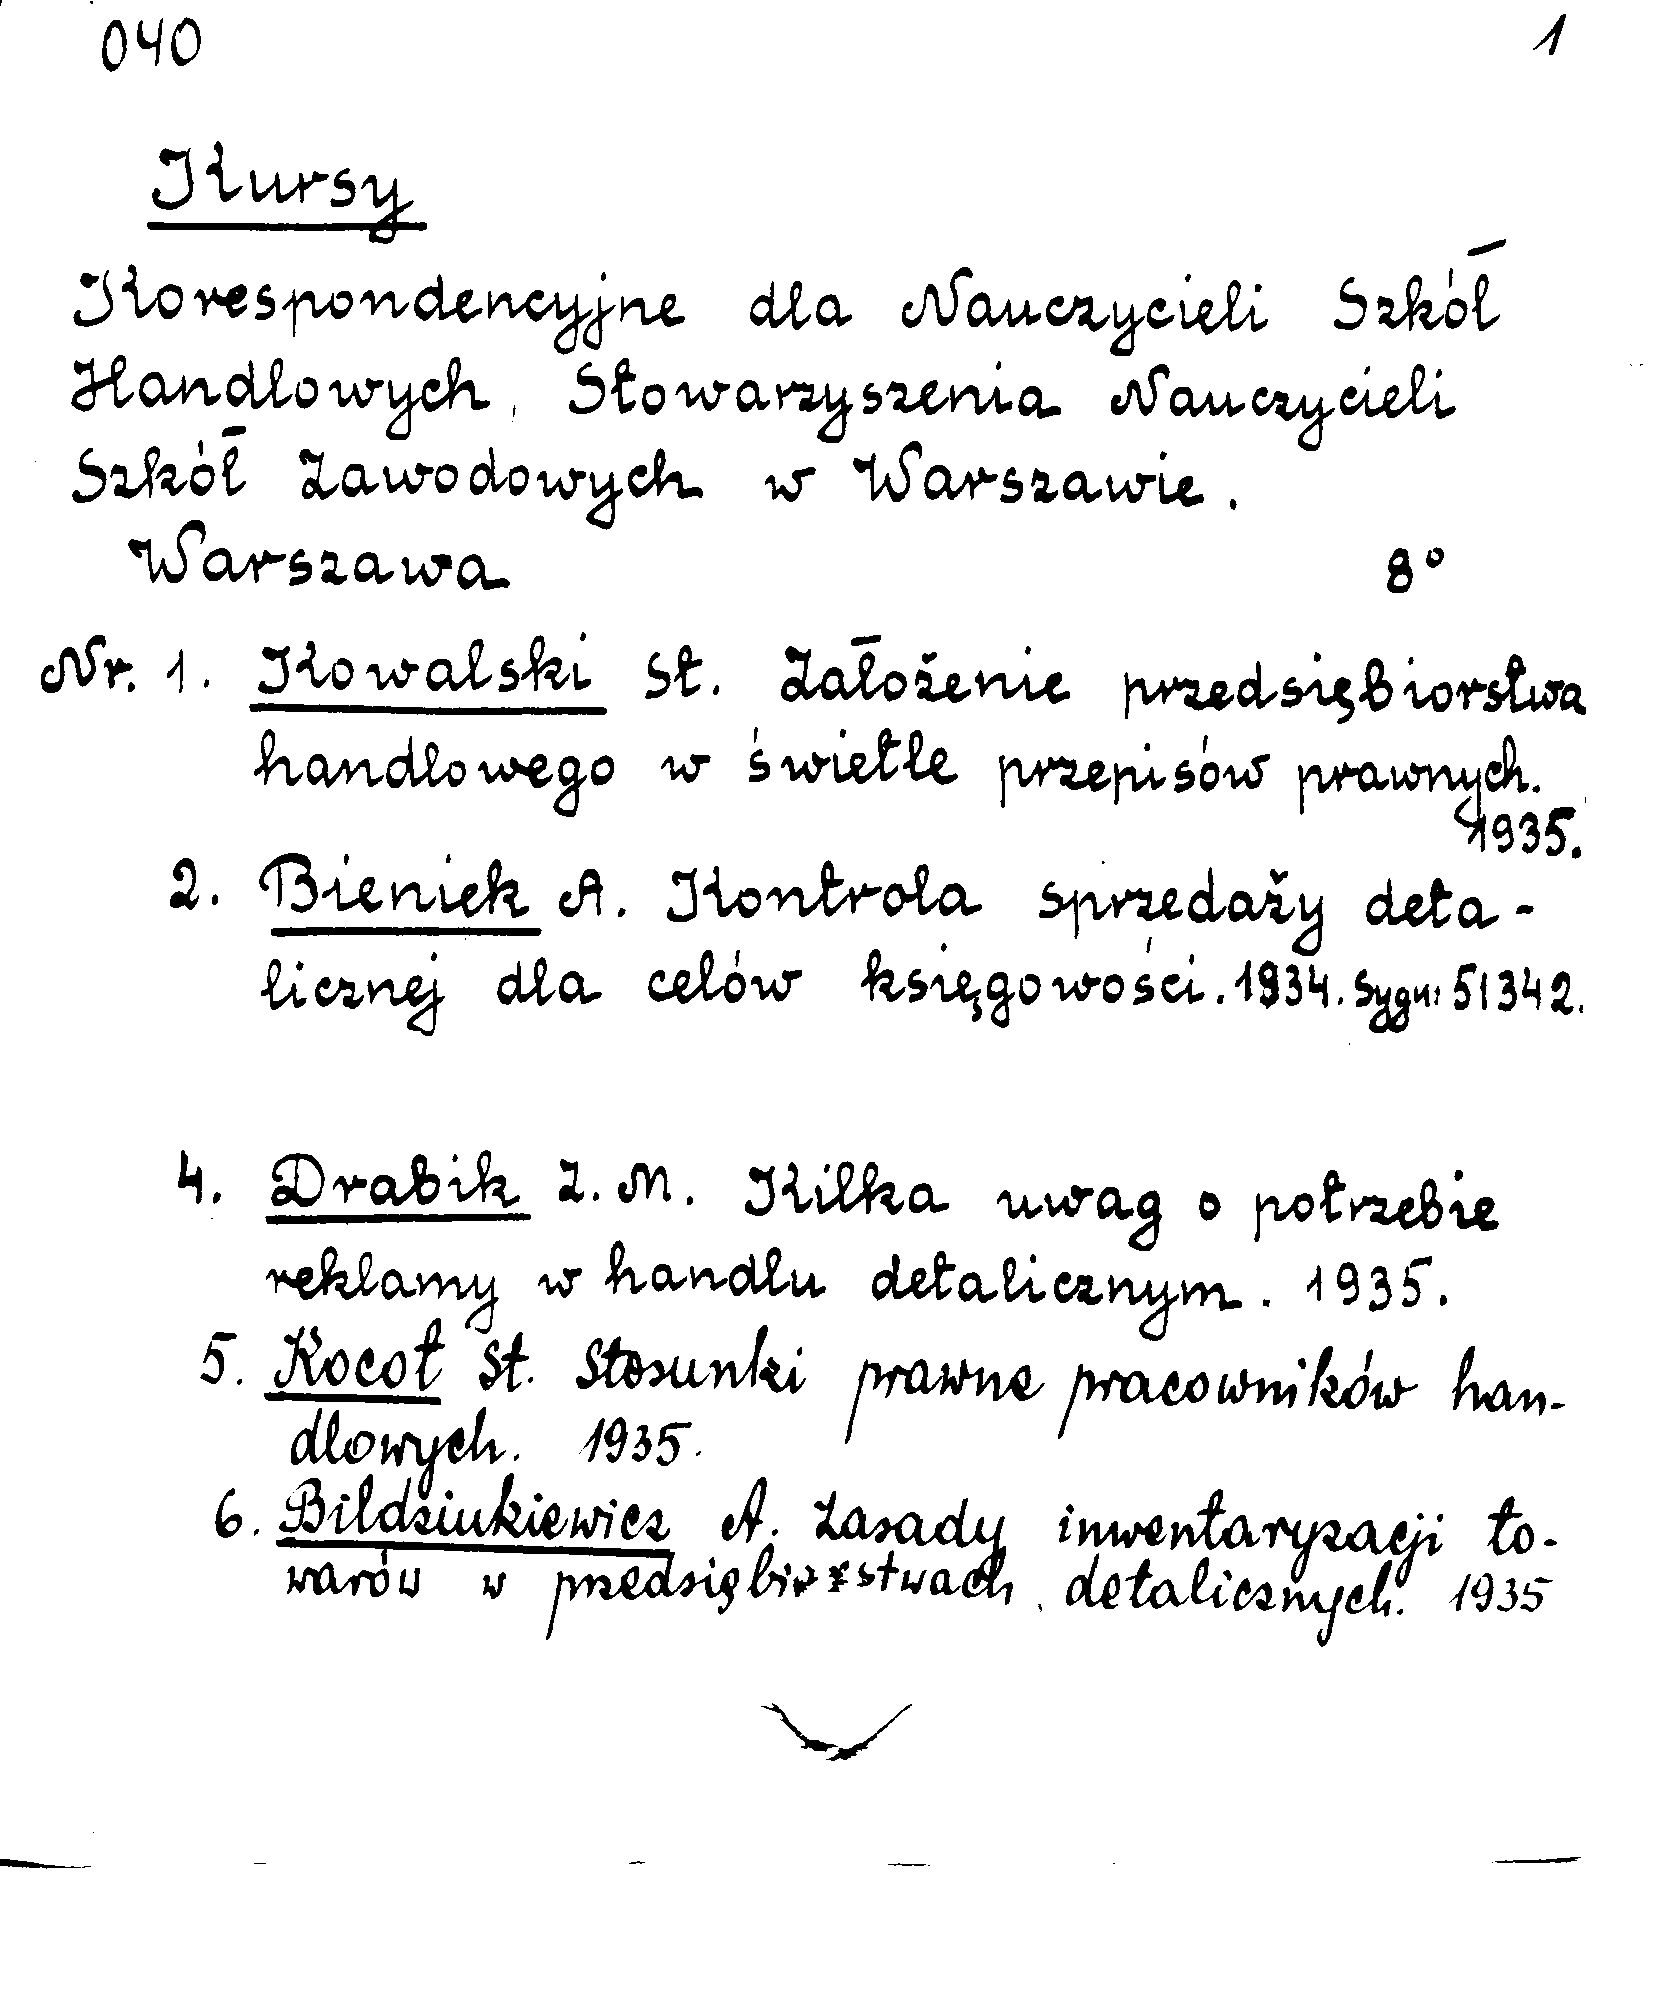 040 1
Kursy
Korespondencyjne dla Nauczycieli Szkół
Handlowych, Stowarzyszenia Nauczycieli
Szkół Zawodowych w Warszawie.
Warszawa 8°
Nr. 1. Kowalski St. Założenie przedsiębiorstwa
handlowego w świetle przepisów prawnych.
1935.
2. Bieniek A. Kontrola sprzedaży deta-
licznej dla celów księgowości. 1934. Sygn: 51342.
4. Drabik Z. M. Kilka uwag o potrzebie
reklamy w handlu detalicznym. 1935.
5. Kocot St. Stosunki prawne pracowników han-
dlowych. 1935.
6. Bildziukiewicz A. Zasady inwentaryzacji to-
warów w przedsiębiorstwach detalicznych. 1935